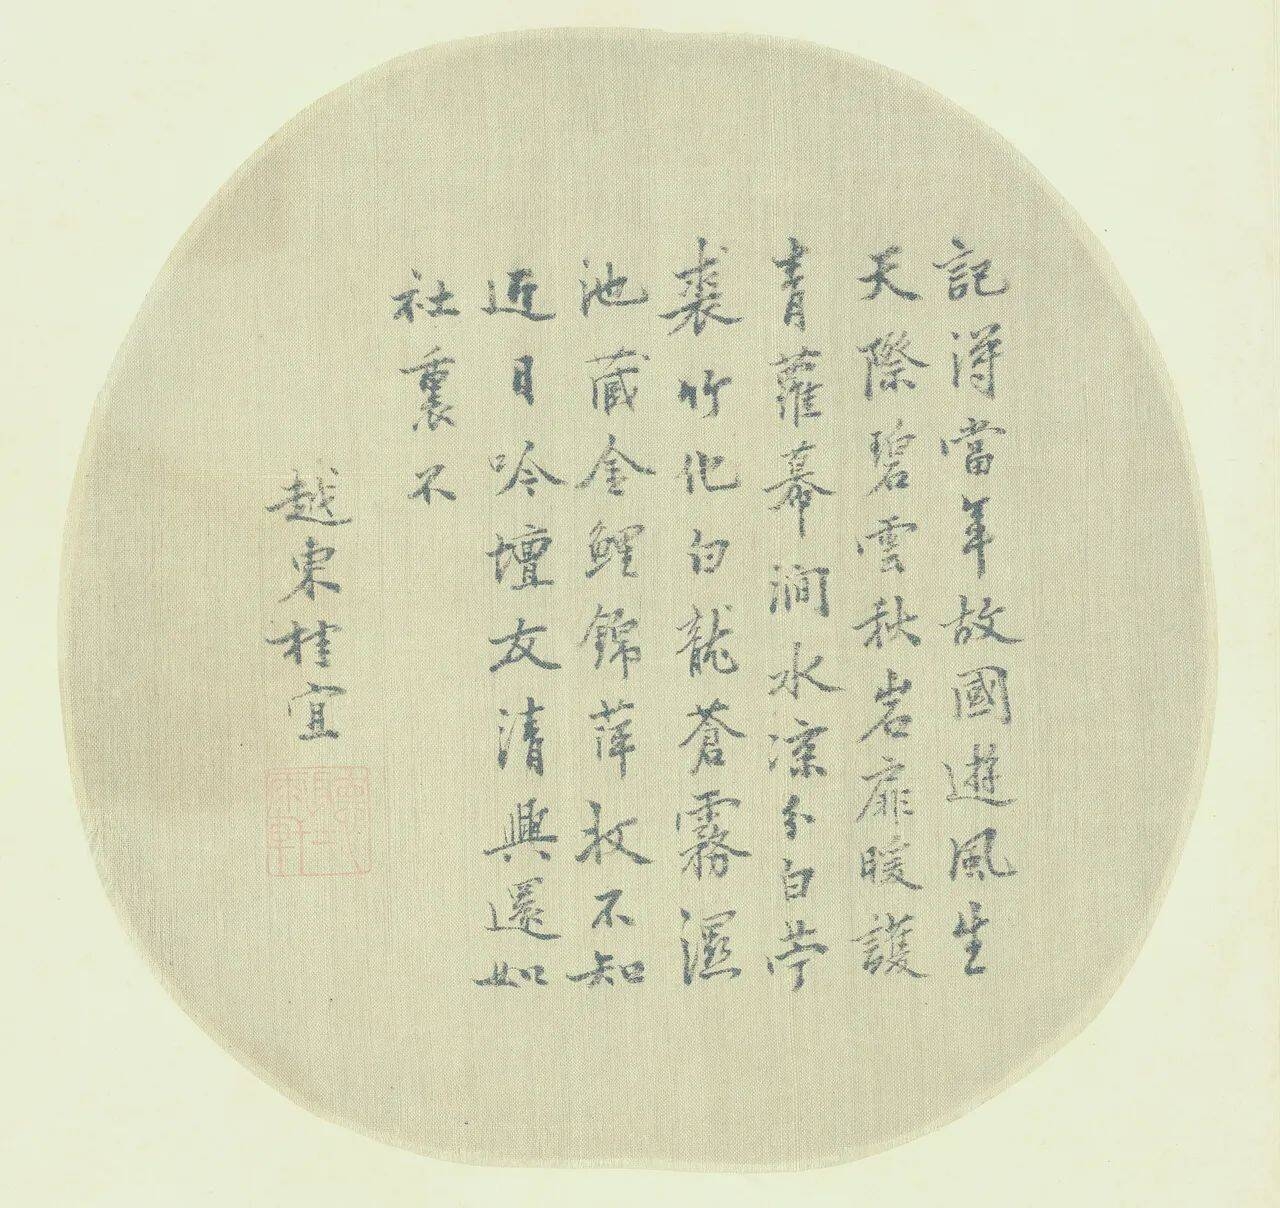 記得當年故國遊風生
天際碧雲秋岩扉暖護
青蘿幕澗水涼分白苧
裘竹化白龍蒼霧濕
池藏金鯉錦萍收不知
近日吟壇友清興還如
社裏不
越東桂宜